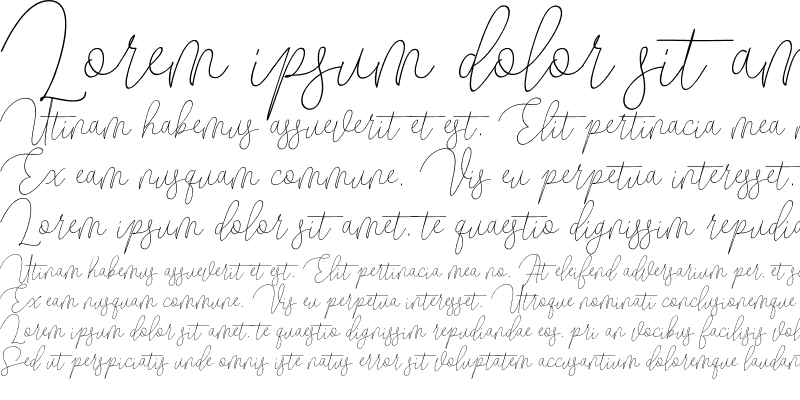 Lorem ipsum dolor sit am
Utinam habemus assueverit et est. Elit pertinacia mea n
Ex eam nusquam commune. Vis eu perpetua interesset.
Lorem ipsum dolor sit amet. te quaestio dignissim repudia
Utinam habemus assueverit et est. Elit pertinacia mea no. At eleifend adversarium per. et so
Ex eam nusquam commune. Vis eu perpetua interesset. Utroque nominati conclusionemque
Lorem ipsum dolor sit amet. te quaestio dignissim repudiandae eos. pri an vocibus facilisis vol
Sed ut perspiciatis unde omnis iste natus error sit voluptatem accusantium doloremque laudan